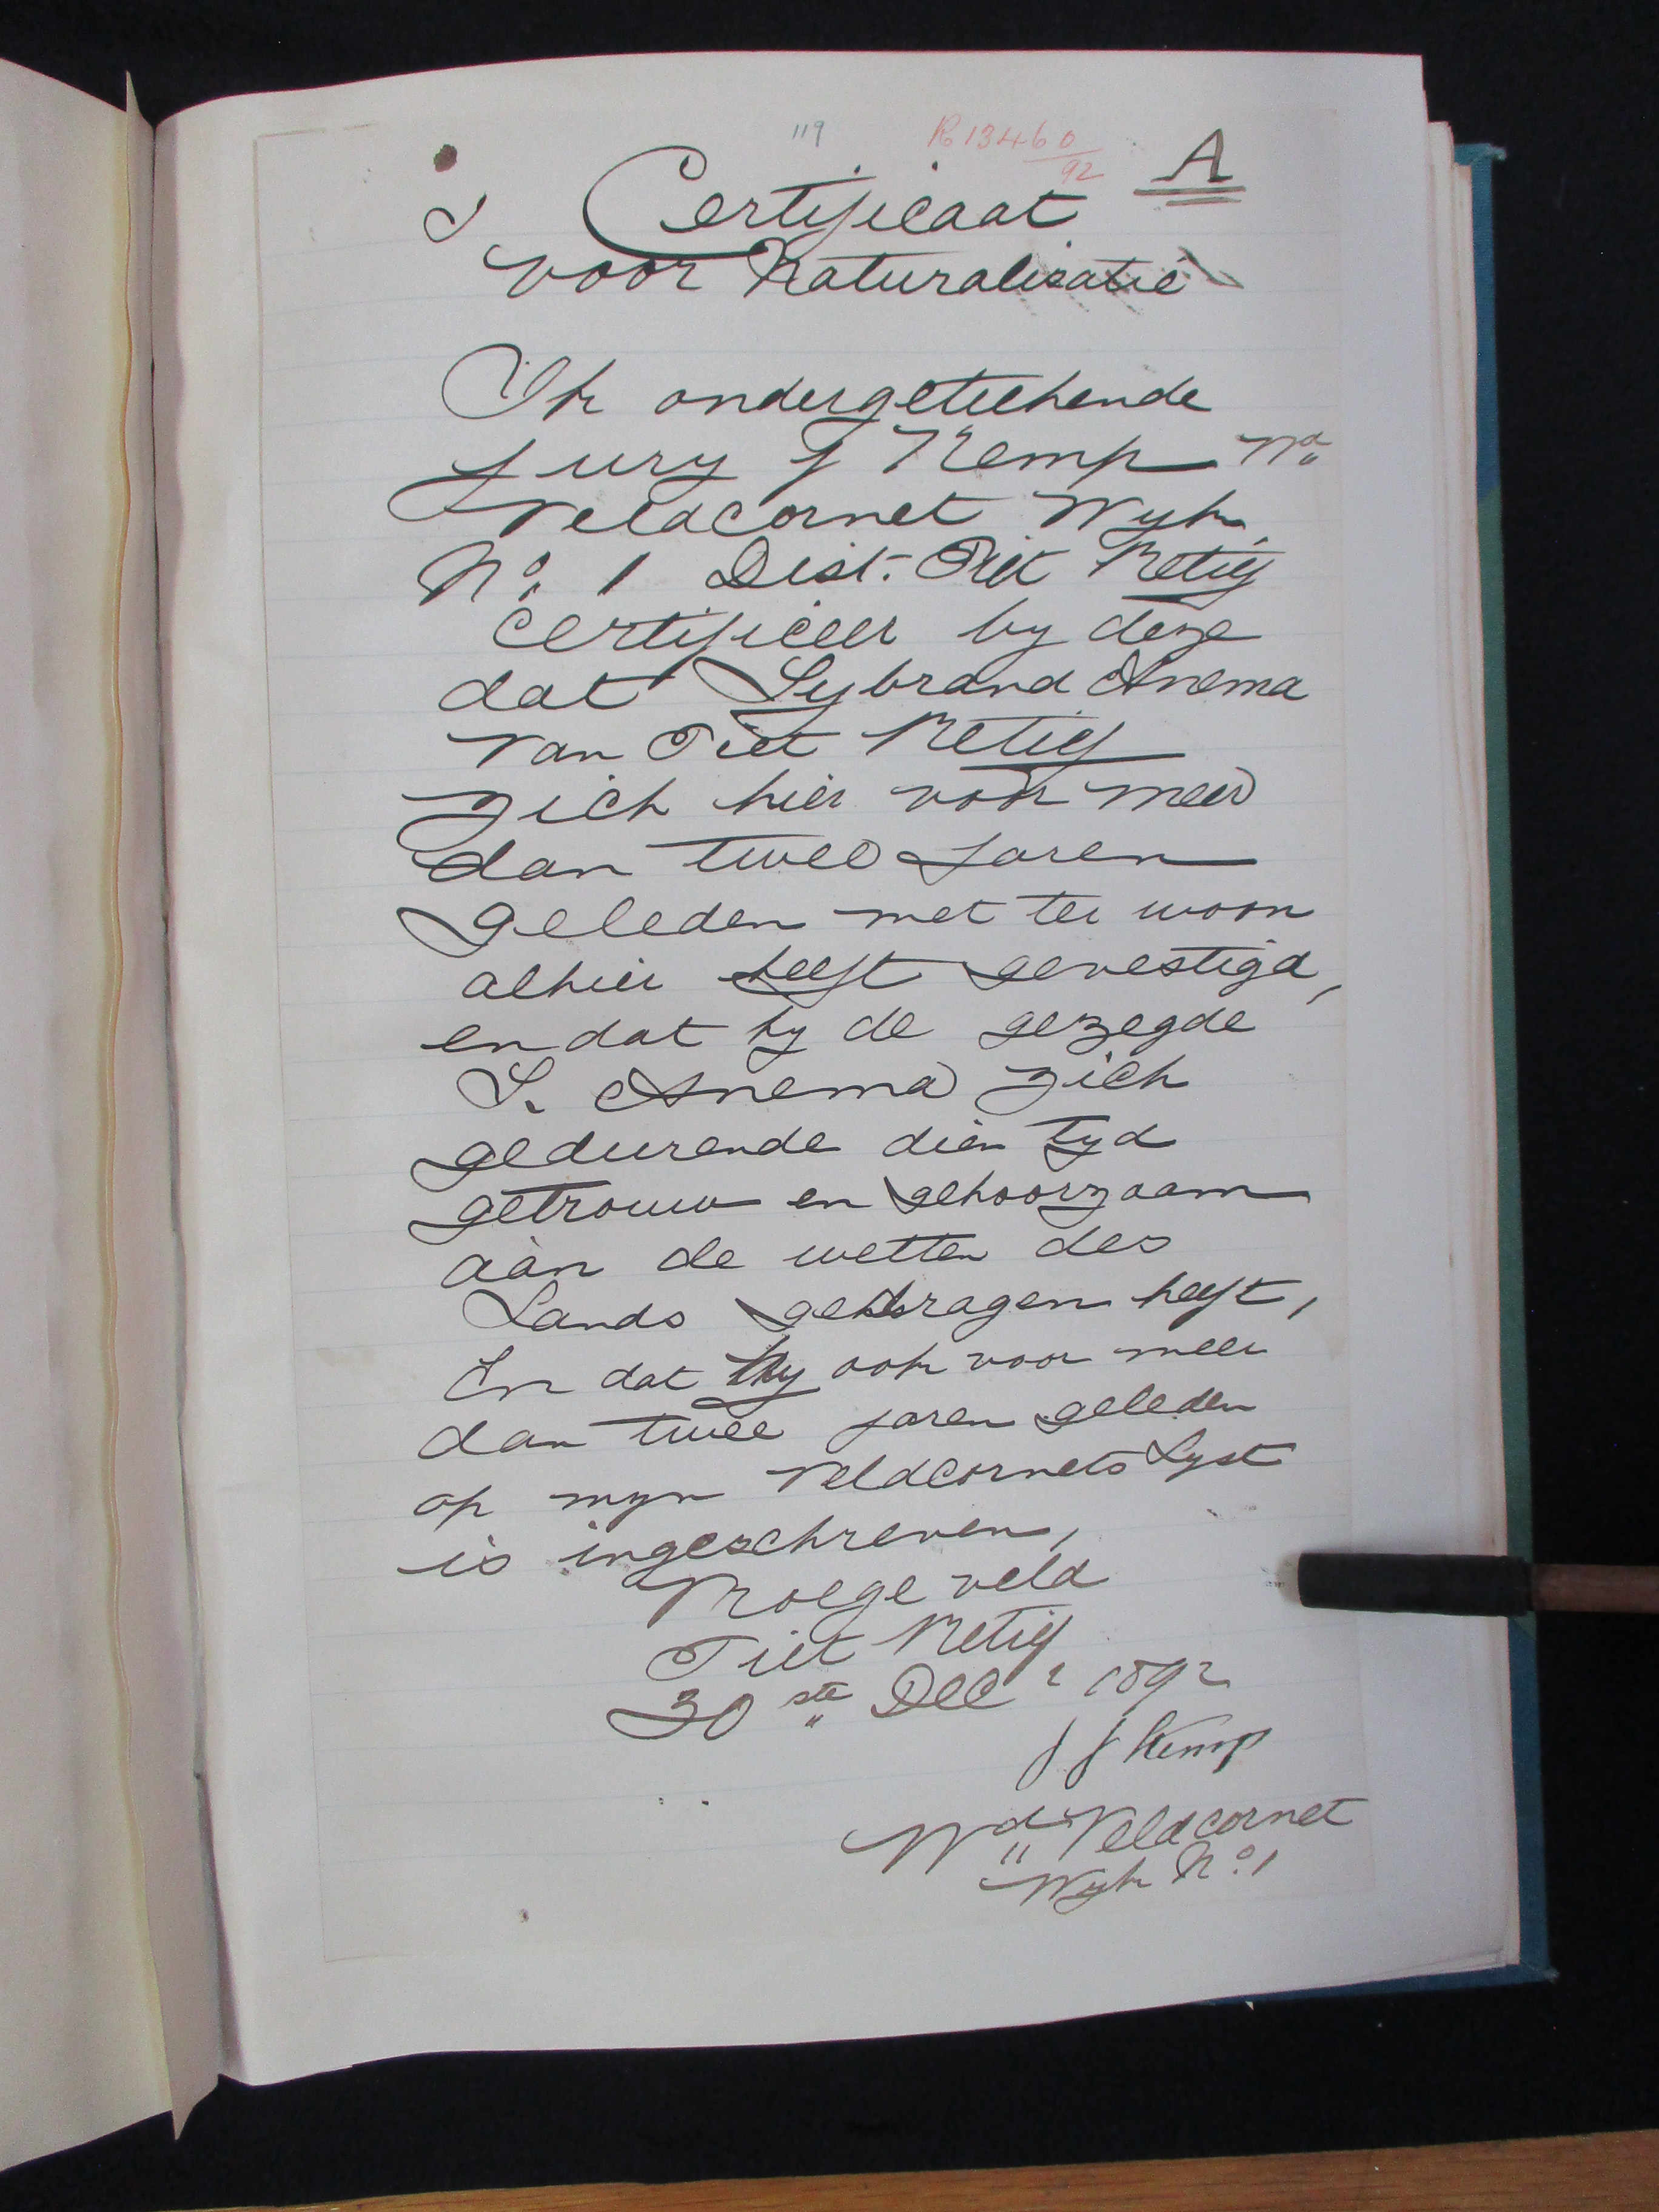 119 R 13460/92 A
Certificaat
voor Naturalisatie
Ik ondergeteekende
Jury J Kemp Wd
Veldcornet Wyk
No. 1 Dist. Piet Retief
Certificeer by deze
dat Sybrand Anema
van Piet Retief
zich hier voor meer
dan twee Jaren
geleden met ter woon
alhier heeft gevestigd,
en dat hy de gezegde
S. Anema zich
gedurende dien tyd
getrouw en gehoorzaam
aan de wetten des
Lands gedragen heeft,
En dat hy ook voor meer
dan twee jaren geleden
op myn Veldcornets Lyst
is ingeschreven,
Vroegeveld
Piet Retief
30ste Decr 1892
J J Kemp
Wd Veldcornet
Wyk No. 1